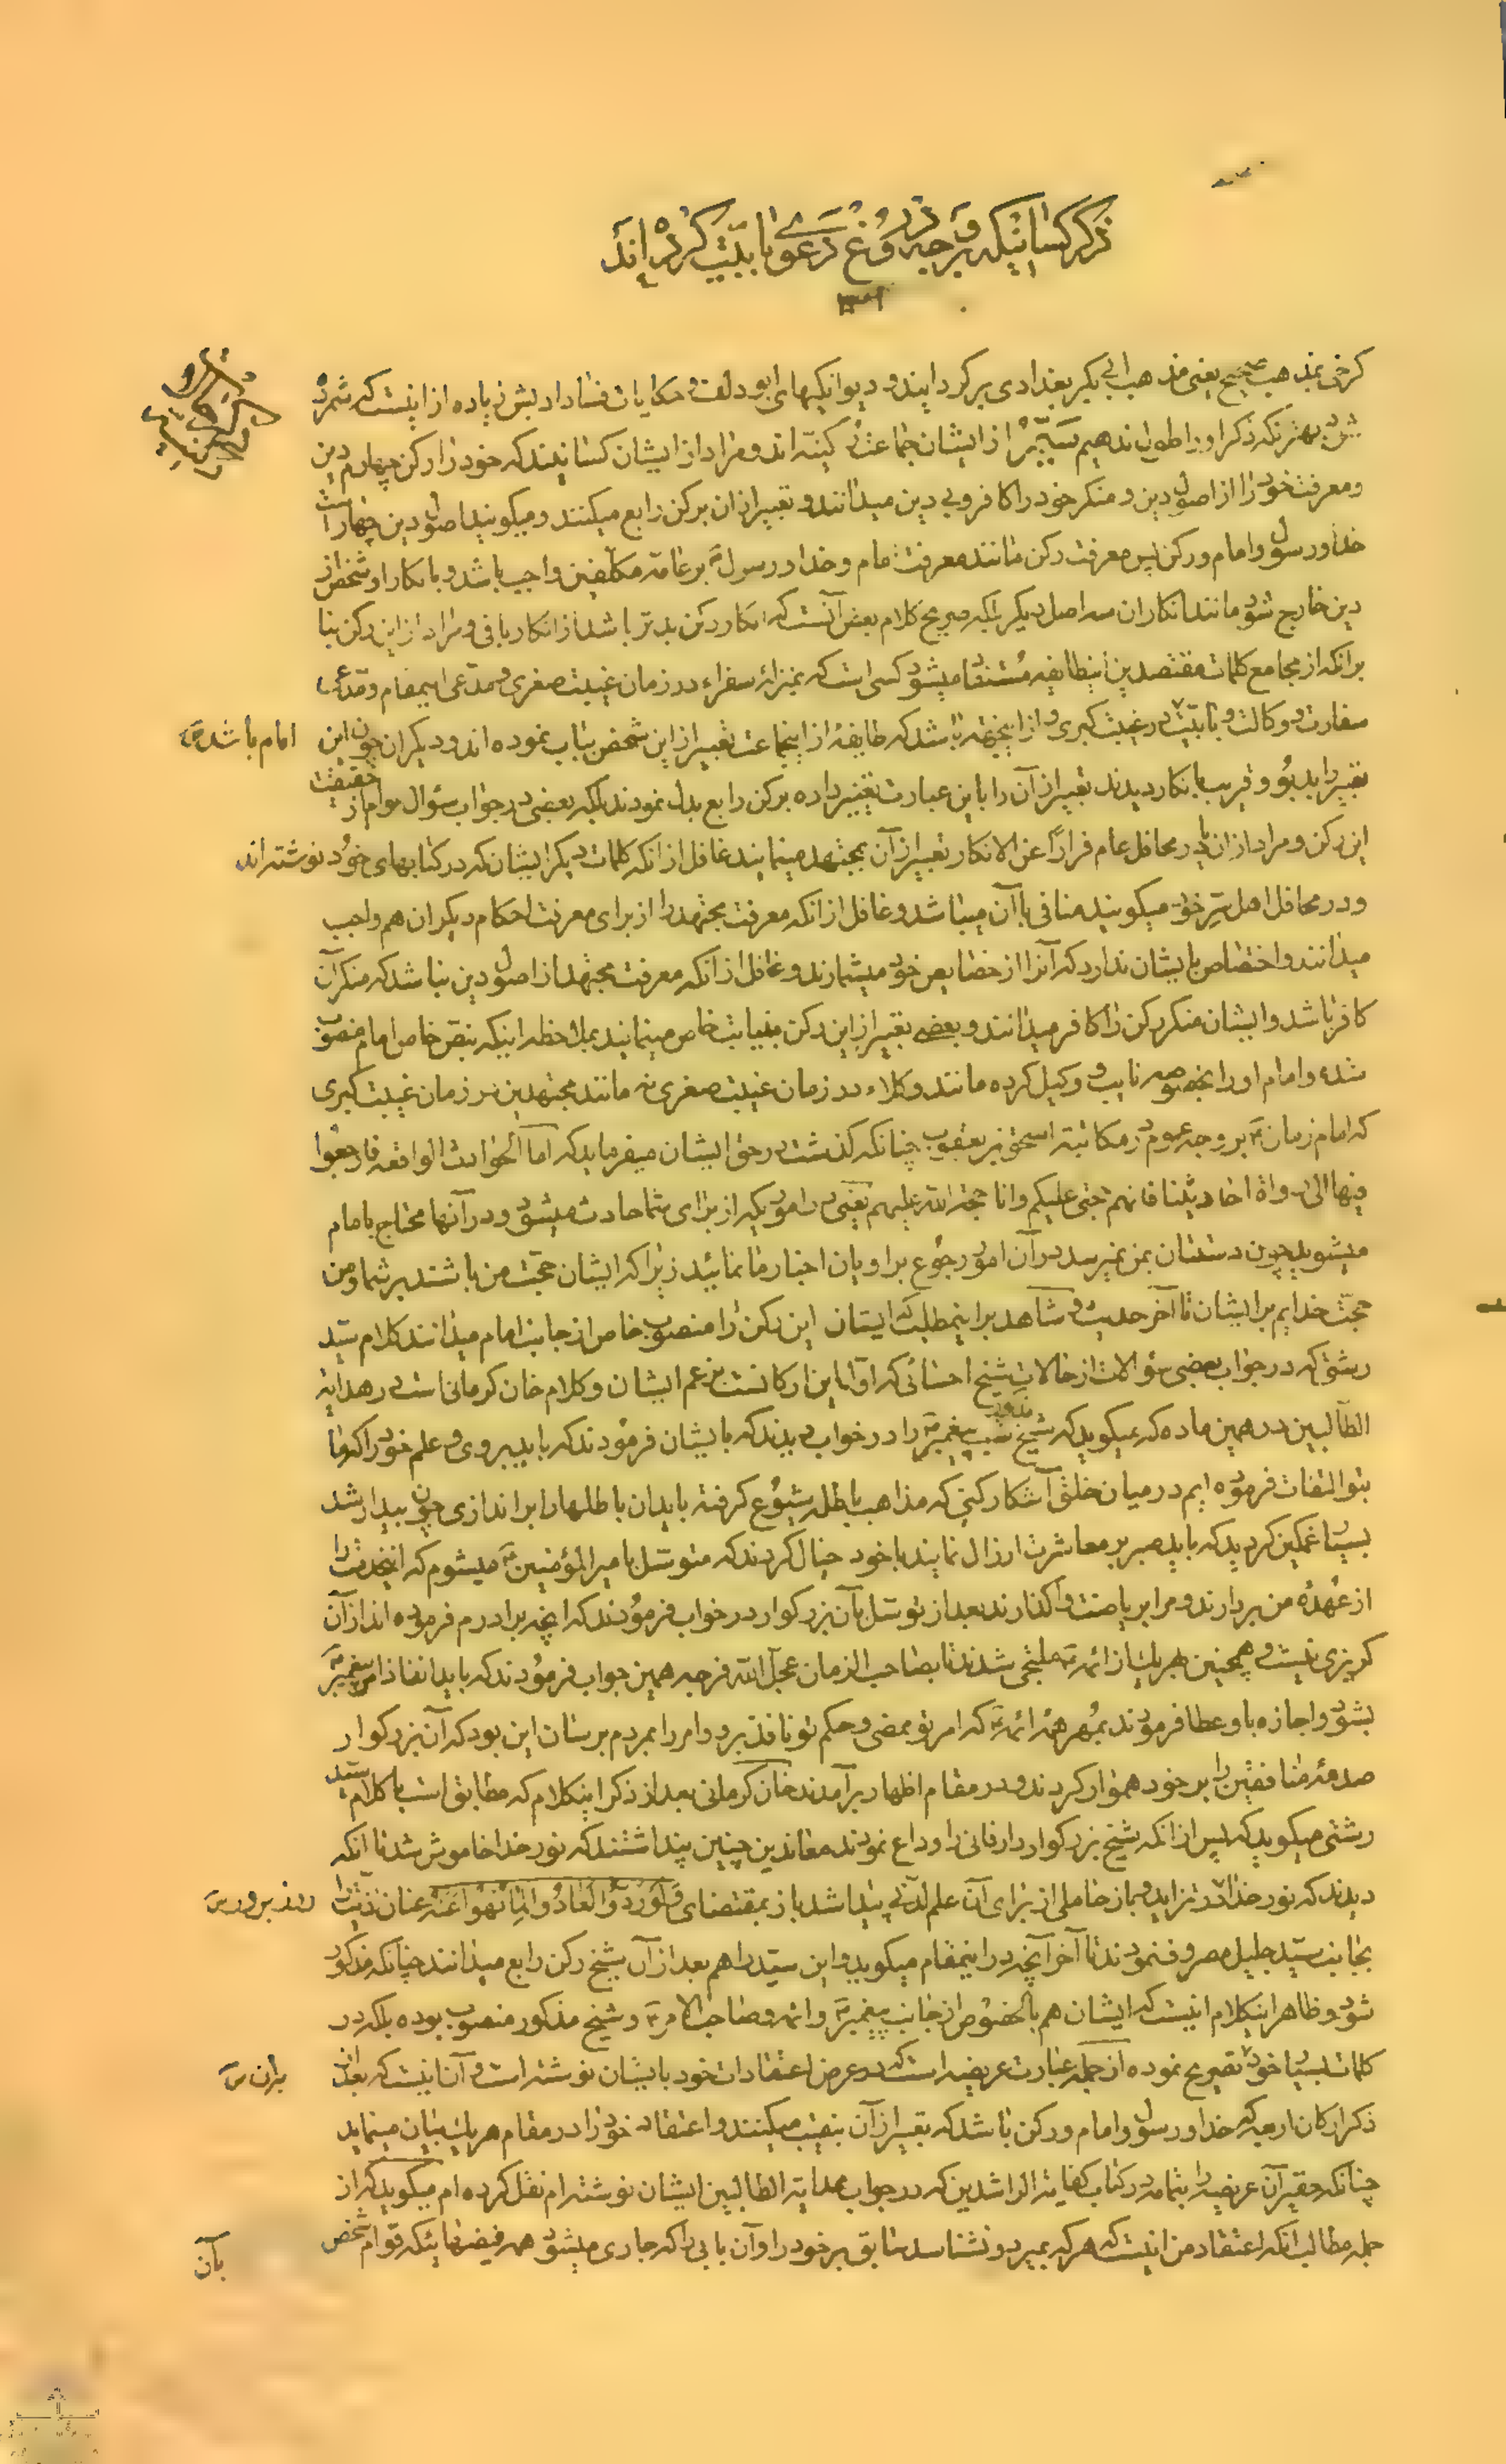 ذکر کسانیکه بر وجه دروغ دعوی بابیت کرده اند
۱۳۰۱
کرخی بمذهب صحیح یعنی مذهب ابی بکر بغدادی برگردانیدند و دیوانگیهای ابو دلف و حکایات فساد او بیش زیاده از اینست که شمرده
شود بهتر انکه ذکر او را طول ندهیم از ایشان جماعت رکنیّه اند و مراد از ایشان کسانیند که خود را رکن چهارم دین
و معرفت خود را از اصول دین و منکر خود را کافر و بی دین میدانند و تعبیر از ان برکن رابع میکنند و میگویند اصول دین چهار است
خدا و رسول و امام و رکن پس معرفت رکن مانند معرفت امام و خدا و رسول بر عامّه مکلفین واجب باشد و بانکار او شخص از
دین خارج شود مانند انکار ان سه اصل دیگر بلکه صریح کلام بعض آنست که انکار رکن بدتر باشد از انکار باقی و مراد از این رکن بنا
برانکه از مجامع کلمات مقتصدین اینطایفه مستفاد میشود کسی است که بمنزله سفراء در زمان غیبت صغری و مدّعی اینمقام و مدّعی
سفارت و وکالت و بابیّت در غیبت کبری و از اینجهة باشد که طایفهٔ از اینجماعت تعبیر از این شخص بباب نموده اند و دیگران چون این
امام باشد
تعبیر را بدبو و قریب بانکار دیدند تعبیر از آن را باین عبارت تغییر داده برکن رابع بدل نمودند بلکه بعضی در جواب سؤال عوام از حقیقت
این رکن و مراد از ان یا در محافل عام فراراً عن الانکار تعبیر از آن بمجتهد مینمایند غافل از انکه کلمات دیگر ایشان که در کتابهای خود نوشته اند
و در محافل اهل سرّ خود میگویند منافی با آن میباشد و غافل از انکه معرفت مجتهد را از برای معرفت احکام دیگران هم واجب
میدانند و اختصاص بایشان ندارد که آنرا از خصایص خود میشمارند و غافل از انکه معرفت مجتهد از اصول دین نباشد که منکر آن
کافر باشد و ایشان منکر رکن را کافر میدانند و بعضی تعبیر از این رکن بنیابت خاص مینمایند بملاحظه اینکه بنصّ خاص امام منصوب
شده و امام او را بخصوصه نایب و وکیل کرده مانند وکلاء در زمان غیبت صغری نه مانند مجتهدین در زمان غیبت کبری
که امام زمان بر وجه عموم در مکاتبه اسحق بن یعقوب چنانکه گذشت در حق ایشان میفرماید که اما الحوادث الواقعه فارجعوا
فیها الی رواة احادیثنا فانهم حجتی علیکم وانا حجة الله علیهم یعنی در اموریکه از برای شما حادث میشود و در آنها محتاج بامام
میشوید چون دستتان بمن نمیرسد در آن امور رجوع براویان اخبار ما نمائید زیرا که ایشان حجت من باشند بر شما و من
حجّت خدایم بر ایشان تا آخر حدیث و شاهد بر اینمطلب که ایشان این رکن را منصوب خاص از جانب امام میدانند کلام سید
رشتی که در جواب بعضی سؤالات از حالات شیخ احسائی که اوّل این ارکانست بزعم ایشان و کلام خان کرمانی است در هدایة
الطالبین در همین ماده که میگوید که شیخ مذکور شب پیغمبر را در خواب دیدند که بایشان فرمودند که باید بروی و علم خود را که ما
بتو التفات فرموده ایم در میان خلق آشکار کنی که مذاهب باطله شیوع گرفته باید ان باطلها را براندازی چون بیدار شد
بسیار غمگین گردید که باید صبر بر معاشرت ارذال نماید با خود خیال کردند که متوسّل بامیر المؤمنین میشوم که اینخدمت را
از عهدهٔ من بردارند و مرا بریاضت واگذارند بعد از توسّل بآن بزرگوار در خواب فرمودند که انچه برادرم فرموده اند از آن
گریزی نیست و همچنین بهریک از ائمه ملتجی شدند تا بصاحب الزمان عجّل الله فرجه همین جواب فرمودند که باید انفاذ امر پیغمبر
بشود و اجازه باو عطا فرمودند بمُهر همهٔ ائمه که امر تو ممضی و حکم تو نافذ برو و امر را بمردم برسان این بود که آن بزرگوار
صدمهٔ منافقین را بر خود هموار کردند و در مقام اظهار برآمدند خان کرمانی بعد از ذکر اینکلام که مطابق است با کلام سید
رشتی میگوید که پس از انکه شیخ بزرگوار دار فانی را وداع نمودند معاندین چنین پنداشتند که نور خدا خاموش شد تا انکه
دیدند که نور خدا در تزاید و باز حاملی از برای آن علم لدنّی پیدا شد باز بمقتضای وَلَوْ رُدُّوا لَعَادُوا لِمَا نُهُوا عَنْهُ عنان اذیّت را
بجانب سیّد جلیل مصروف نمودند تا آخر آنچه در اینمقام میگوید و این سیّد را هم بعد از آن شیخ رکن رابع میدانند چنانکه مذکور
شود و ظاهر اینکلام اینست که ایشان هم بالخصوص از جانب پیغمبر و ائمه و صاحب الامر و شیخ مذکور منصوب بوده بلکه در
کلمات بسیار خود تصریح نموده از جمله عبارت عریضه است که در عرض اعتقادات خود بایشان نوشته است و آن اینست که بعد از
ذکر ارکان اربعه که خدا و رسول و امام و رکن باشد که تعبیر از آن بنقیب میکنند و اعتقاد خود را در مقام هریک بیان مینماید
چنانکه حقیر آن عریضه را بتمامه در کتاب کفایة الراشدین که در جواب هدایة الطالبین ایشان نوشته ام نقل کرده ام میگوید که از
جمله مطالب انکه اعتقاد من اینست که هر که بمیرد و نشناسد سابق بر خود را و آن بابی را که جاری میشود همه فیضهائیکه قوام شخص
بآن